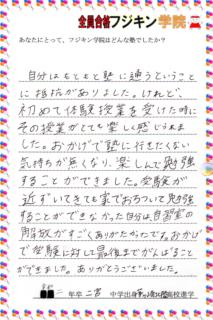 全員合格フジキン学院
あなたにとって、フジキン学院はどんな塾でしたか？
自分はもともと塾に通うということ
に抵抗がありました。けれど、
初めて体験授業を受けた時に
その授業がとても楽しく感じられま
した。おかげで塾に行きたくない
気持ちが無くなり、楽しんで勉強
することができました。受験が
近づいてきても家でおちついて勉強
することができなかった自分は、自習室の
開放がすごくありがたかったです。おかげ
で受験に対して最後までがんばること
ができました。ありがとうございました。
年卒 二宮 中学出身 高校進学